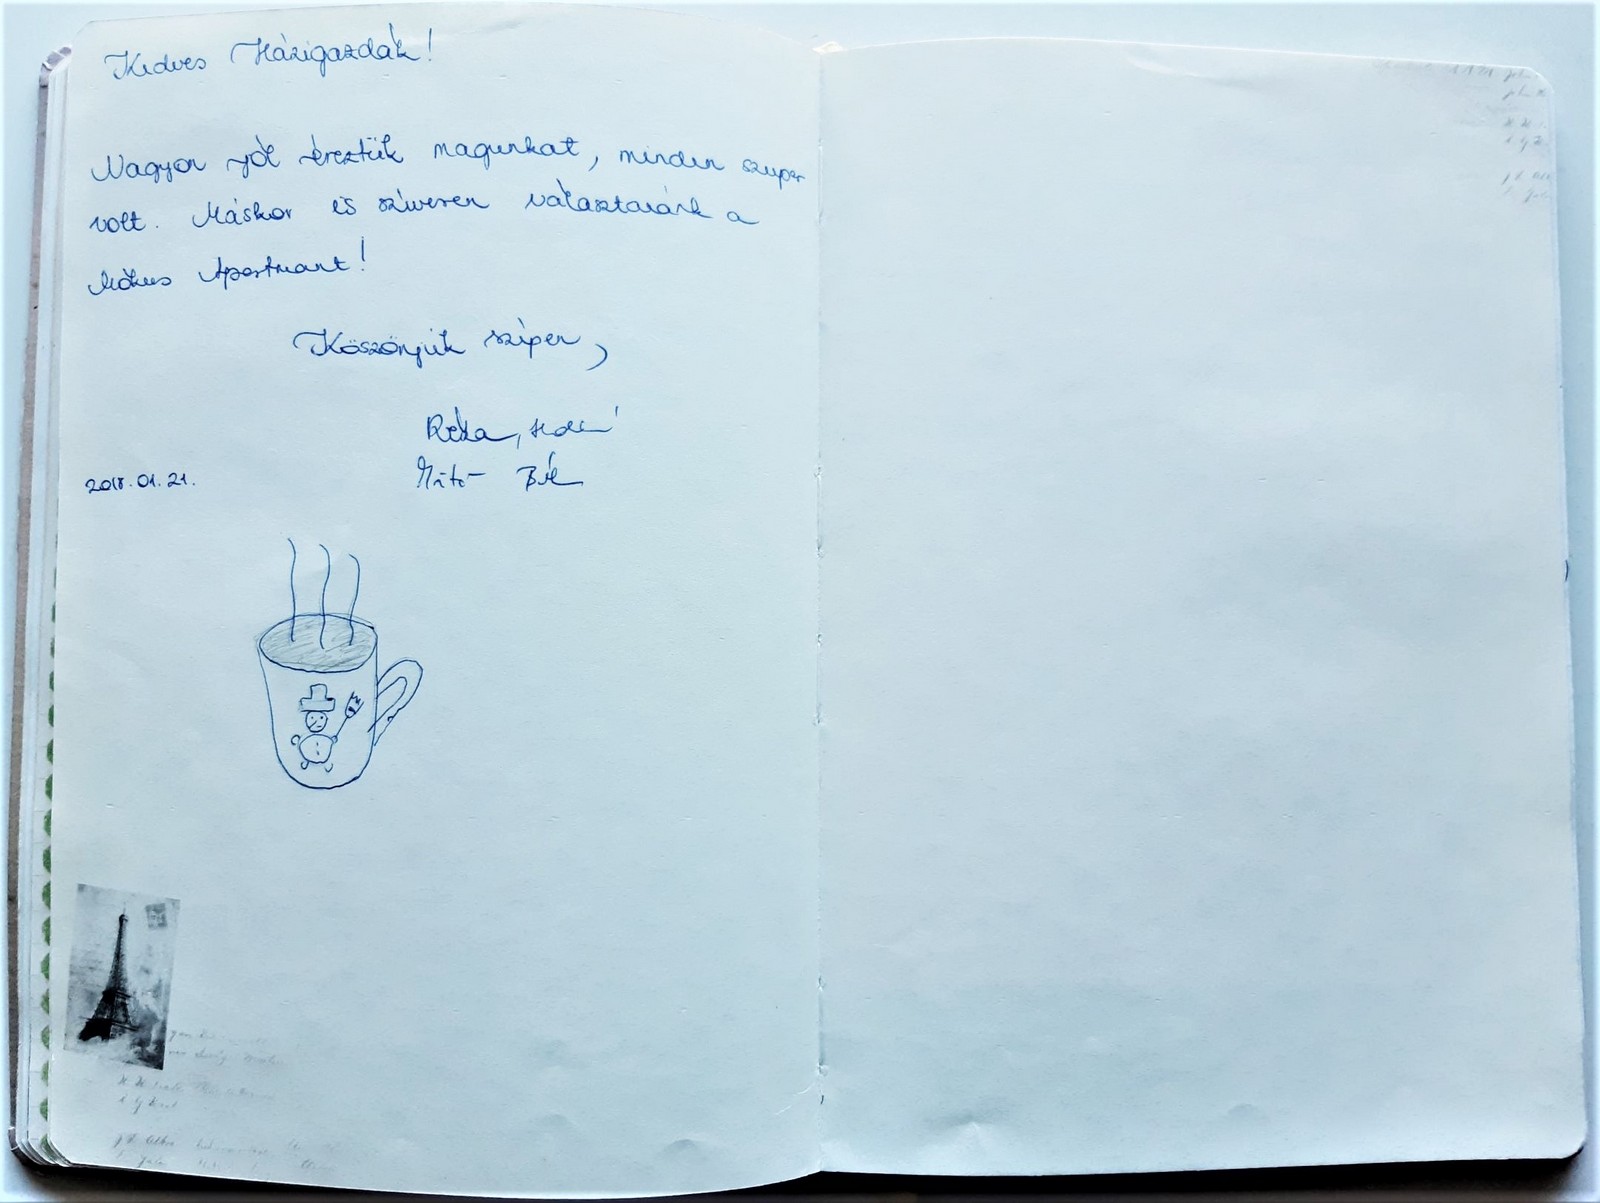 Kedves Házigazdák!
Nagyon jól éreztük magunkat, minden szuper
volt. Máskor is szívesen választanánk a
Mókus Apartmant!
Köszönjük szépen,
Réka,
2018.01.21.